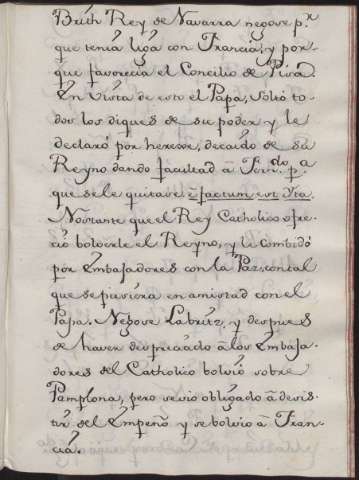 Brith Rey de Navarra negose p.r
que tenia liga con Francia, y por-
que favorecia el Concilio de Pisa.
En vista de esto el Papa, soltó to-
dos los diques de su poder y le
declaró por herexe, decaído de su
Reyno dando facultad â Fern.do p.a
que se le quitase ẽ factum est Ita.
Nostante que el Rey Catholico ofre-
ció bolverle el Reyno, y le combidó
por Embajadores con la Paz, con tal
que se pusiera en amistad con el
Papa. Negose Labrit, y despues
de haver despreciado â los Embaja-
dores del Catholico bolvió sobre
Pamplona, pero se vio obligado â desis-
tir del Empeño y se bolvio â Fran-
cia.